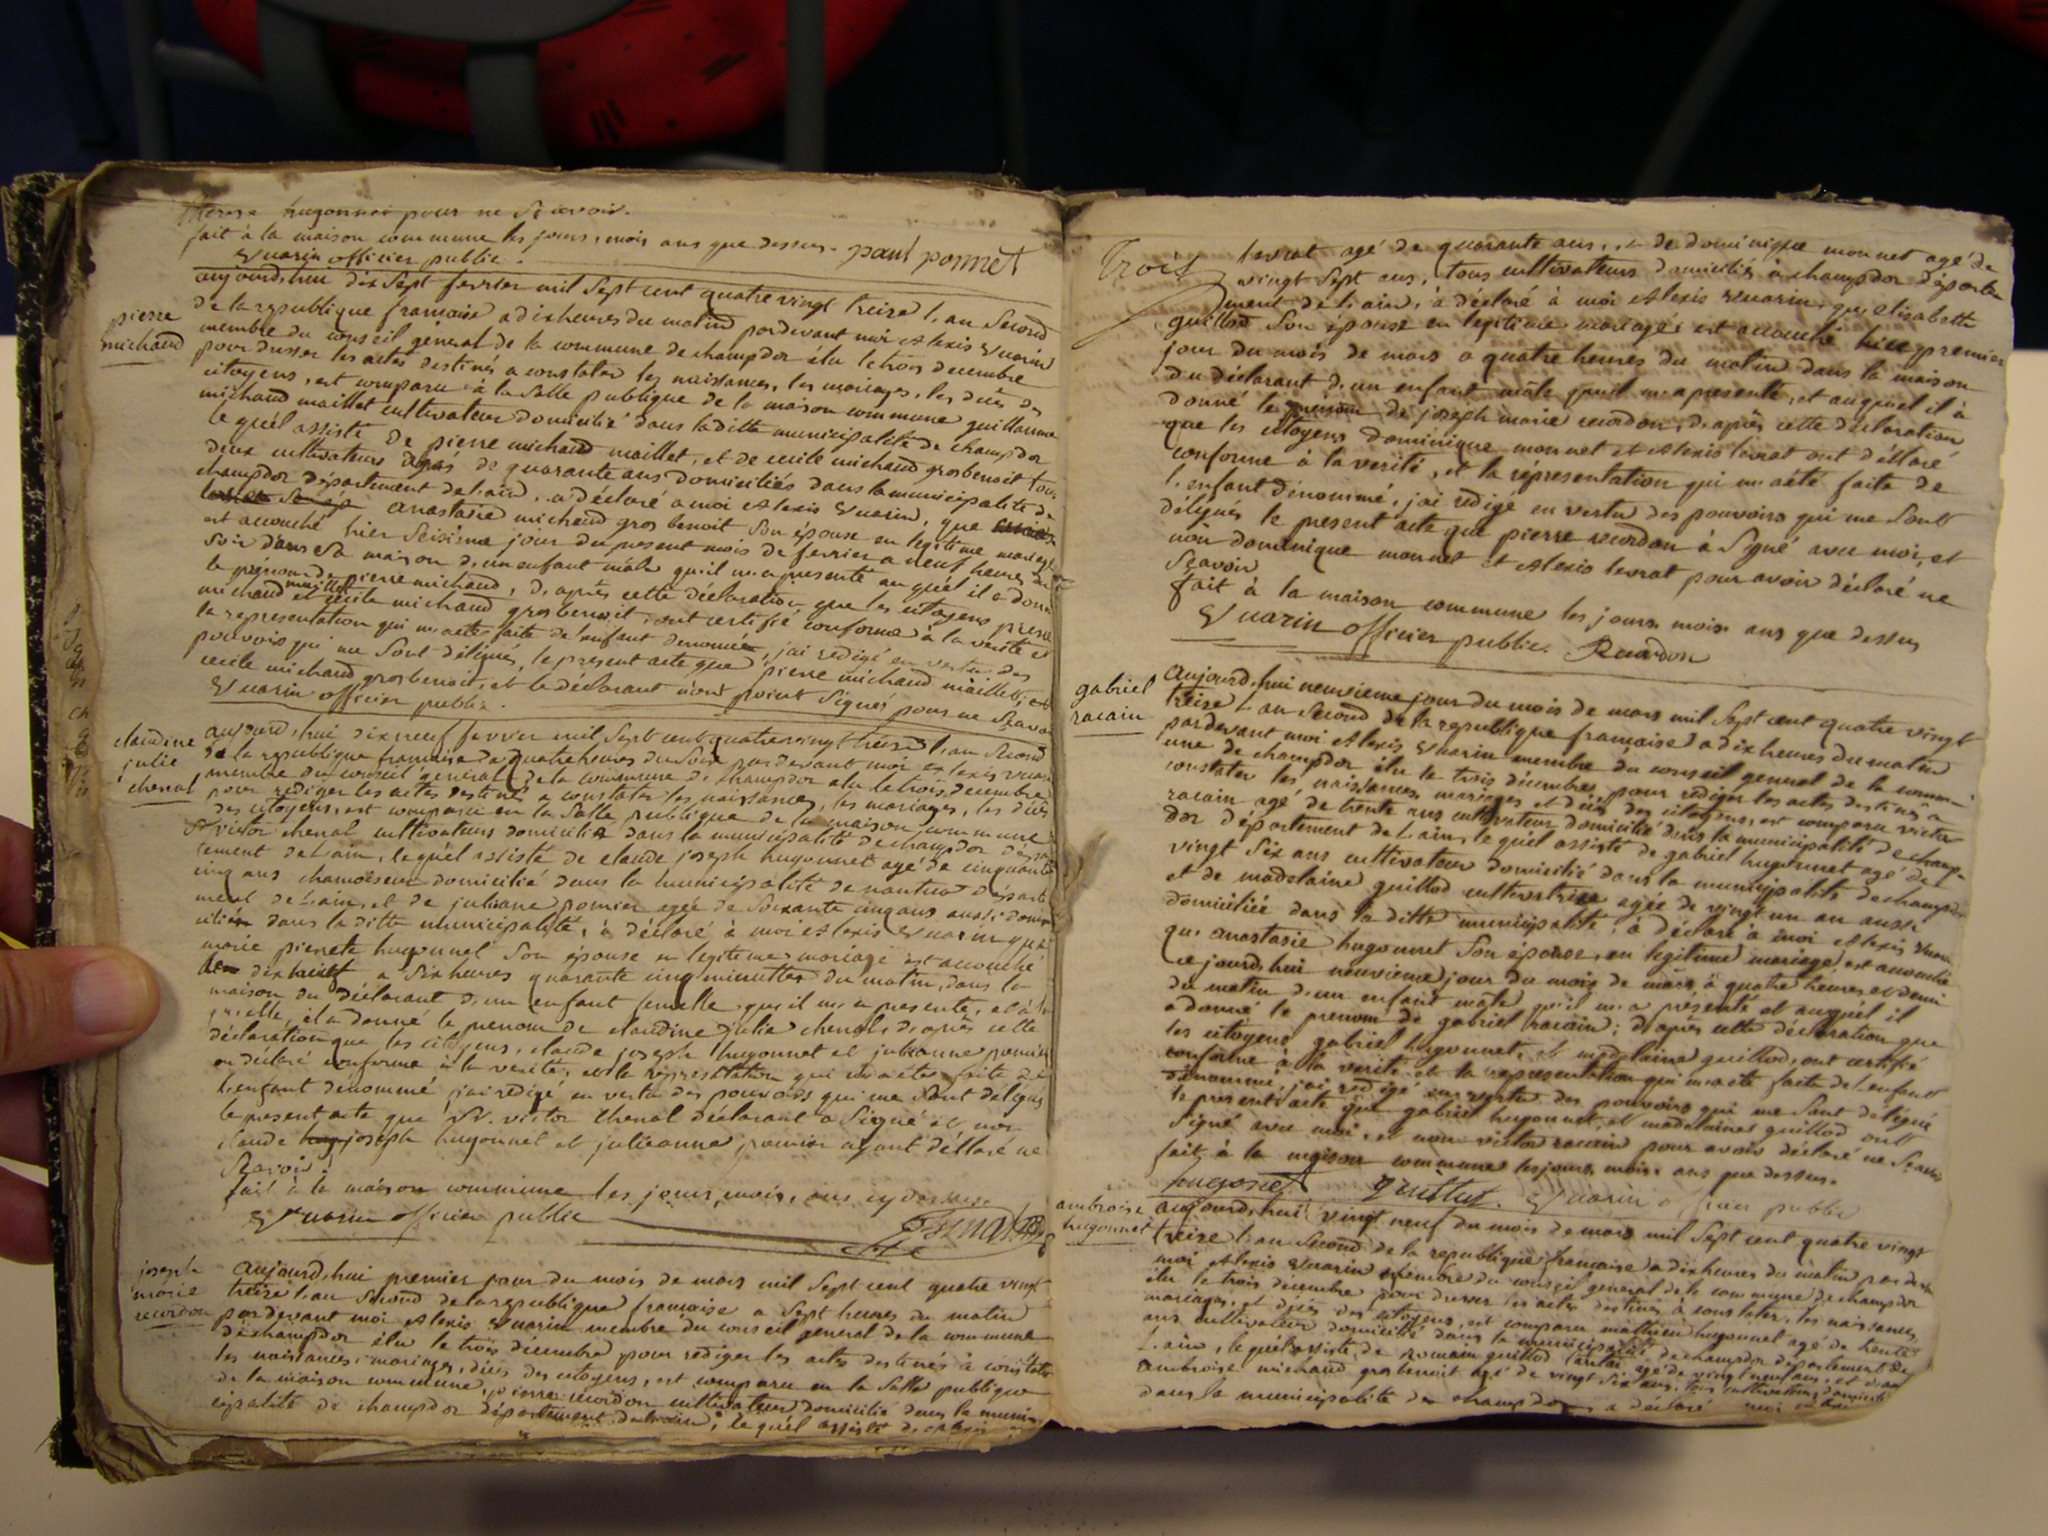 therese hugonnet pour ne Scavoir.
fait à la maison commune les jours, mois ans que dessus. paul ponnet
Vuarin officier public.
pierre
michaud
aujourd,hui dix Sept fevrier mil Sept cent quatre vingt treize l,an Second
de la republique francoise a dix heures du matin pardevant moi Alexis Vuarin
membre du conseil géneral de la commune de champdor élu le trois decembre
pour dresser les actes destinés a constater les naissances, les mariages, les décès des
citoyens, est comparu à la Salle publique de la maison commune guillaume
michaud maillet cultivateur domicilié dans la ditte municipalité de champdor
le quél assisté de pierre michaud maillet, et de cecile michaud grosbenoit tous
deux cultivateurs agés de quarante ans domiciliés dans la municipalité de
champdor département de l,ain, a déclaré a moi Alexis Vuarin, que
anastasie michaud gros benoit Son épouse en legitime mariage
est accouché hier Seisieme jour du present mois de fevrier a neuf heures du
Soir dans Sa maison d,un enfant mâle qu,il m,a presenté au quél il a donné
le prenom de pierre michaud, d,après cette déclaration que les citoyens pierre
michaud maillet et cécile michaud grosbenoit, ont certifié conforme à la verité et
la representation qui m,a eté faite de l,enfant denomé, j,ai redigé en vertu des
pouvoirs qui me Sont délégués, le present acte que pierre michaud maillet, et
cecile michaud grosbenoit, et le déclarant n,ont point Signés pour ne Scavoir
Vuarin officier public.
claudine
julie
chenal
aujourd,hui dix neuf fevrier mil Sept cent quatre vingt treize l,an Second
de la republique francoise a quatre heures du Soir pardevant moi Alexis Vuarin
membre du conseil general de la commune de champdor elu le trois decembre
pour rediger les actes destinés a constater les naissances, les mariages, les décès
des citoyens, est comparu en la Salle publique de la maison commune
victor chenal cultivateur domicilié dans la municipalité de champdor dépar
tement de l,ain, le quél assisté de claude joseph hugonnet agé de cinquante
cinq ans domicilié dans la municipalité de nantua départe
ment de l,ain, et de juliane pomier agée de Soixante cinq ans aussi domi
ciliée dans la ditte municipalité, à déclaré à moi Alexis Vuarin que
marie pierrete hugonnet Son épouse en legitime mariage est accouché
dix neuf a Six heures quarante cinq minuttes du matin, dans la
maison du déclarant d,un enfant femelle qu,il m,a presenté, et à la
quelle, il a donné le prenom de claudine julie chenal, d,après cette
déclaration que les citoyens, claude joseph hugonnet et julianne pomier
on déclaré conforme à la verité, et la représentation qui m,a été faite de
l,enfant denommé j,ai redigé en vertu des pouvoirs qui me Sont délégués
le present acte que victor chenal déclarant a Signé et non
claude joseph hugonnet et julieanne pomier ayant déclaré ne
Scavoir.
fait à la maison commune les jours, mois, ans cy dessus.
Vuarin officier public
joseph
marie
ruordon
Aujourd,hui premier jour du mois de mars mil Sept cent quatre vingt
treize l,an Second de la republique francoise a Sept heures du matin
pardevant moi Alexis Vuarin membre du conseil general de la commune
de champdor élu le trois décembre pour rédiger les actes destinés à constater
les naissances, mariages, décès des citoyens, est comparu en la Salle publique
de la maison commune, pierre ruordon cultivateur domicilié dans la muni
cipalité de champdor département de l,ain, le quél assisté de Alexis
Trois
levrat agé de quarante ans, et de dominique monnet agé de
vingt Sept ans, tous cultivateurs domiciliés à champdor départe
ment de l,ain, à déclaré à moi Alexis Vuarin, que elisabeth
guillod Son épouse en legitime mariage est accouché hier premier
jour du mois de mars a quatre heures du matin dans la maison
du déclarant d,un enfant mâle qu,il m,a presenté, et auquél il à
donné le prénom de joseph marie ruordon, d,après cette déclaration
que les citoyens dominique monnet et Alexis levrat ont déclaré
conforme à la verité, et la réprésentation qui m,a été faite de
l,enfant dénommé, j,ai redigé en vertu des pouvoirs qui me Sont
délégués le present acte que pierre ruordon à Signé avec moi, et
non dominique monnet et Alexis levrat pour avoir déclaré ne
Scavoir
fait à la maison commune les jours, mois, ans que dessus
Vuarin officier public. Ruordon
gabriel
racain
Aujourd,hui neuvieme jour du mois de mars mil Sept cent quatre vingt
treize l,an Second de la republique francaise a dix heures du matin
pardevant moi Alexis Vuarin membre du conseil general de la comm-
une de champdor élu le trois décembre, pour rédiger les actes destinés a
constater les naissances, mariages et décès des citoyens, est comparu victor
racain agé de trente ans cultivateur domicilié dans la municipalité de champ-
dor département de l,ain, le quél assisté de gabriel hugonnet agé de
vingt Six ans cultivateur domicilié dans la municipalité de champdor
et de madelaine guillod cultivatrice agée de vingt un an aussi
domiciliée dans la ditte municipalité, à déclaré à moi Alexis Vuarin
que anastasie hugonnet Son épouse, en legitime mariage est accouchée
ce jourd,hui neuvieme jour du mois de mars à quatre heures et demi
du matin d,un enfant mâle qu,il m,a présenté et auquél il
a donné le prenom de gabriel racain; d,après cette déclaration que
les citoyens gabriel hugonnet, et madelaine guillod, ont certifié
conforme à la verité et la representation qui m,a eté faite de l,enfant
dénommé, j,ai redigé en vertu des pouvoirs qui me Sont délégué
le present acte que gabriel hugonnet, et madelaine guillod ont
Signé avec moi, et non victor racain pour avoir déclaré ne Scavoir
fait à la maison commune les jours, mois, ans que dessus.
hugonet guillot. Vuarin officier public
ambroise
hugonnet
aujourd,hui vingt neuf du mois de mars mil Sept cent quatre vingt
treize l,an Second de la republique francaise a dix heures du matin pardevant
moi Alexis Vuarin membre du conseil general de la commune de champdor
élu le trois décembre pour dresser les actes destinés à constater, les naissances,
mariages, et décès des citoyens, est comparu mathieu hugonnet agé de trente
ans cultivateur domicilié dans la municipalité de champdor département de
l,ain, le quél assisté de romain guillod cantai agé de vingt neuf ans, et d'am
ambroise michaud grosbenoit agé de vingt Six ans, tous cultivateurs domiciliés
dans la municipalité de champdor, a déclaré